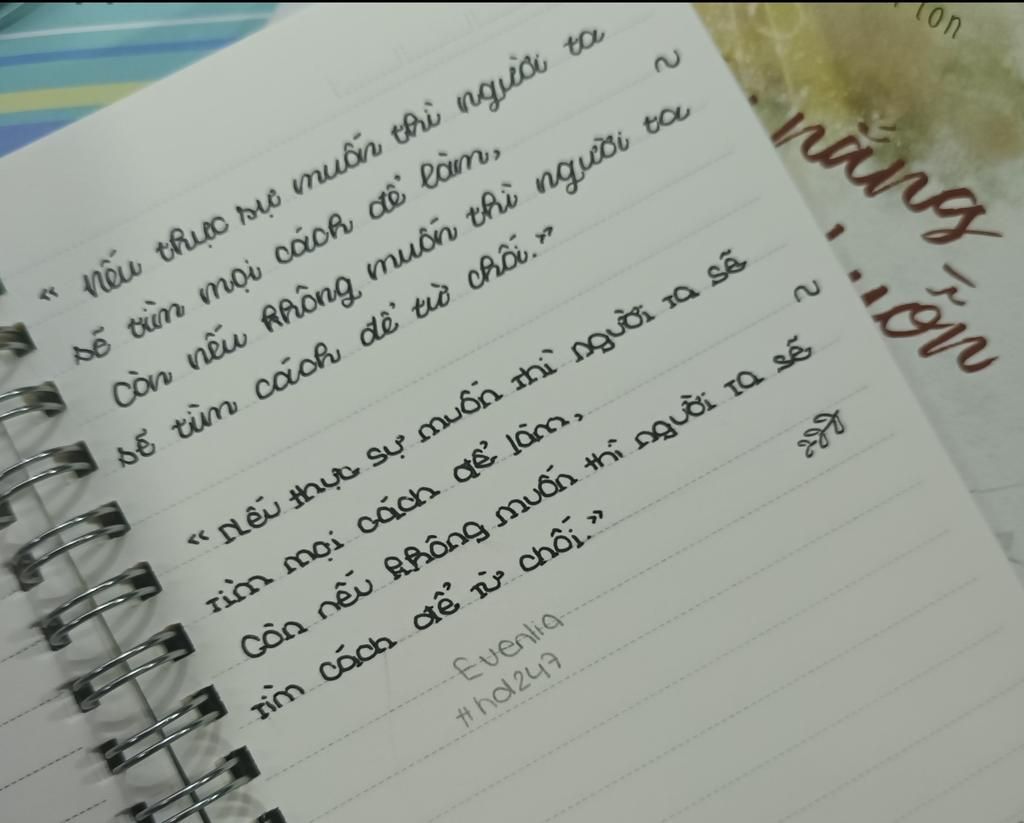 "Nếu thực sự muốn thì người ta
sẽ tìm mọi cách để làm, ~
Còn nếu không muốn thì người ta
sẽ tìm cách để từ chối."
"Nếu thực sự muốn thì người ta sẽ
tìm mọi cách để làm, ~
Còn nếu không muốn thì người ta sẽ
tìm cách để từ chối."
Evenlia
#hd247
nắng